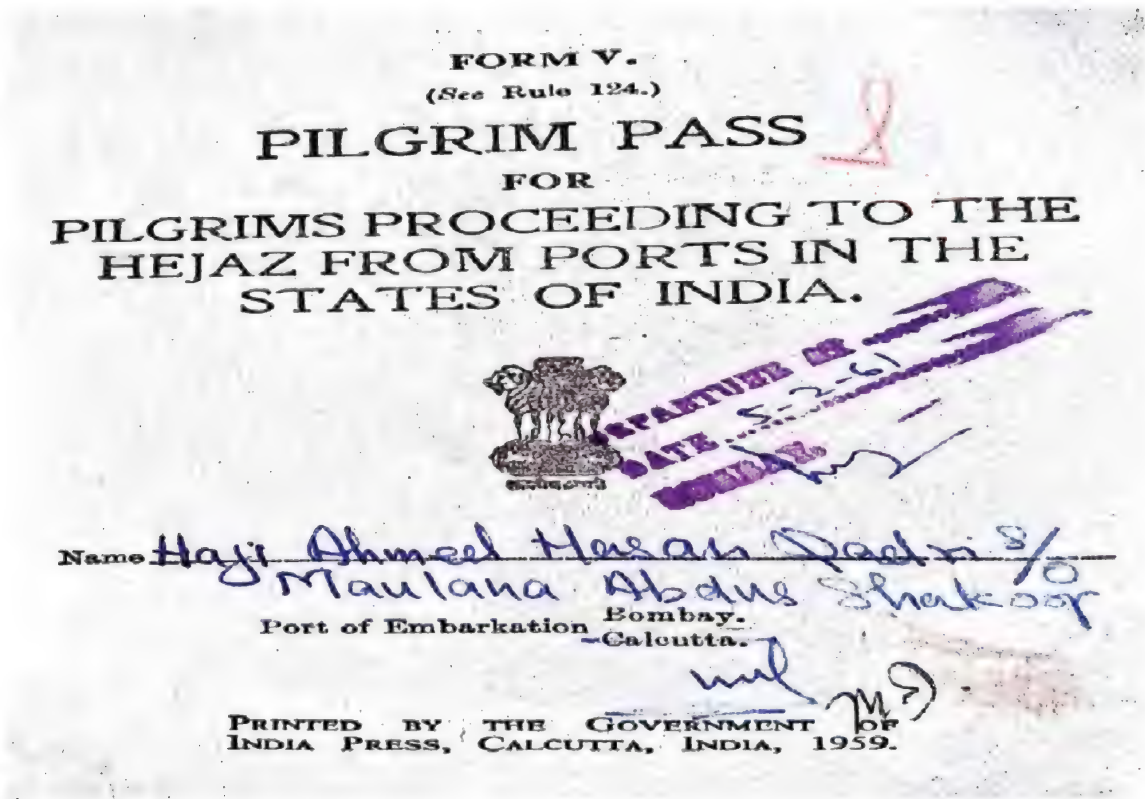 FORM V.
(See Rule 124.)
PILGRIM PASS
FOR
PILGRIMS PROCEEDING TO THE
HEJAZ FROM PORTS IN THE
STATES OF INDIA.
DATE 5-2-61
BOMBAY.
Name Haji Ahmed Hasan S/O
Maulana Abdus Shakoor
Port of Embarkation Bombay.
Calcutta.
PRINTED BY THE GOVERNMENT OF
INDIA PRESS, CALCUTTA, INDIA, 1959.